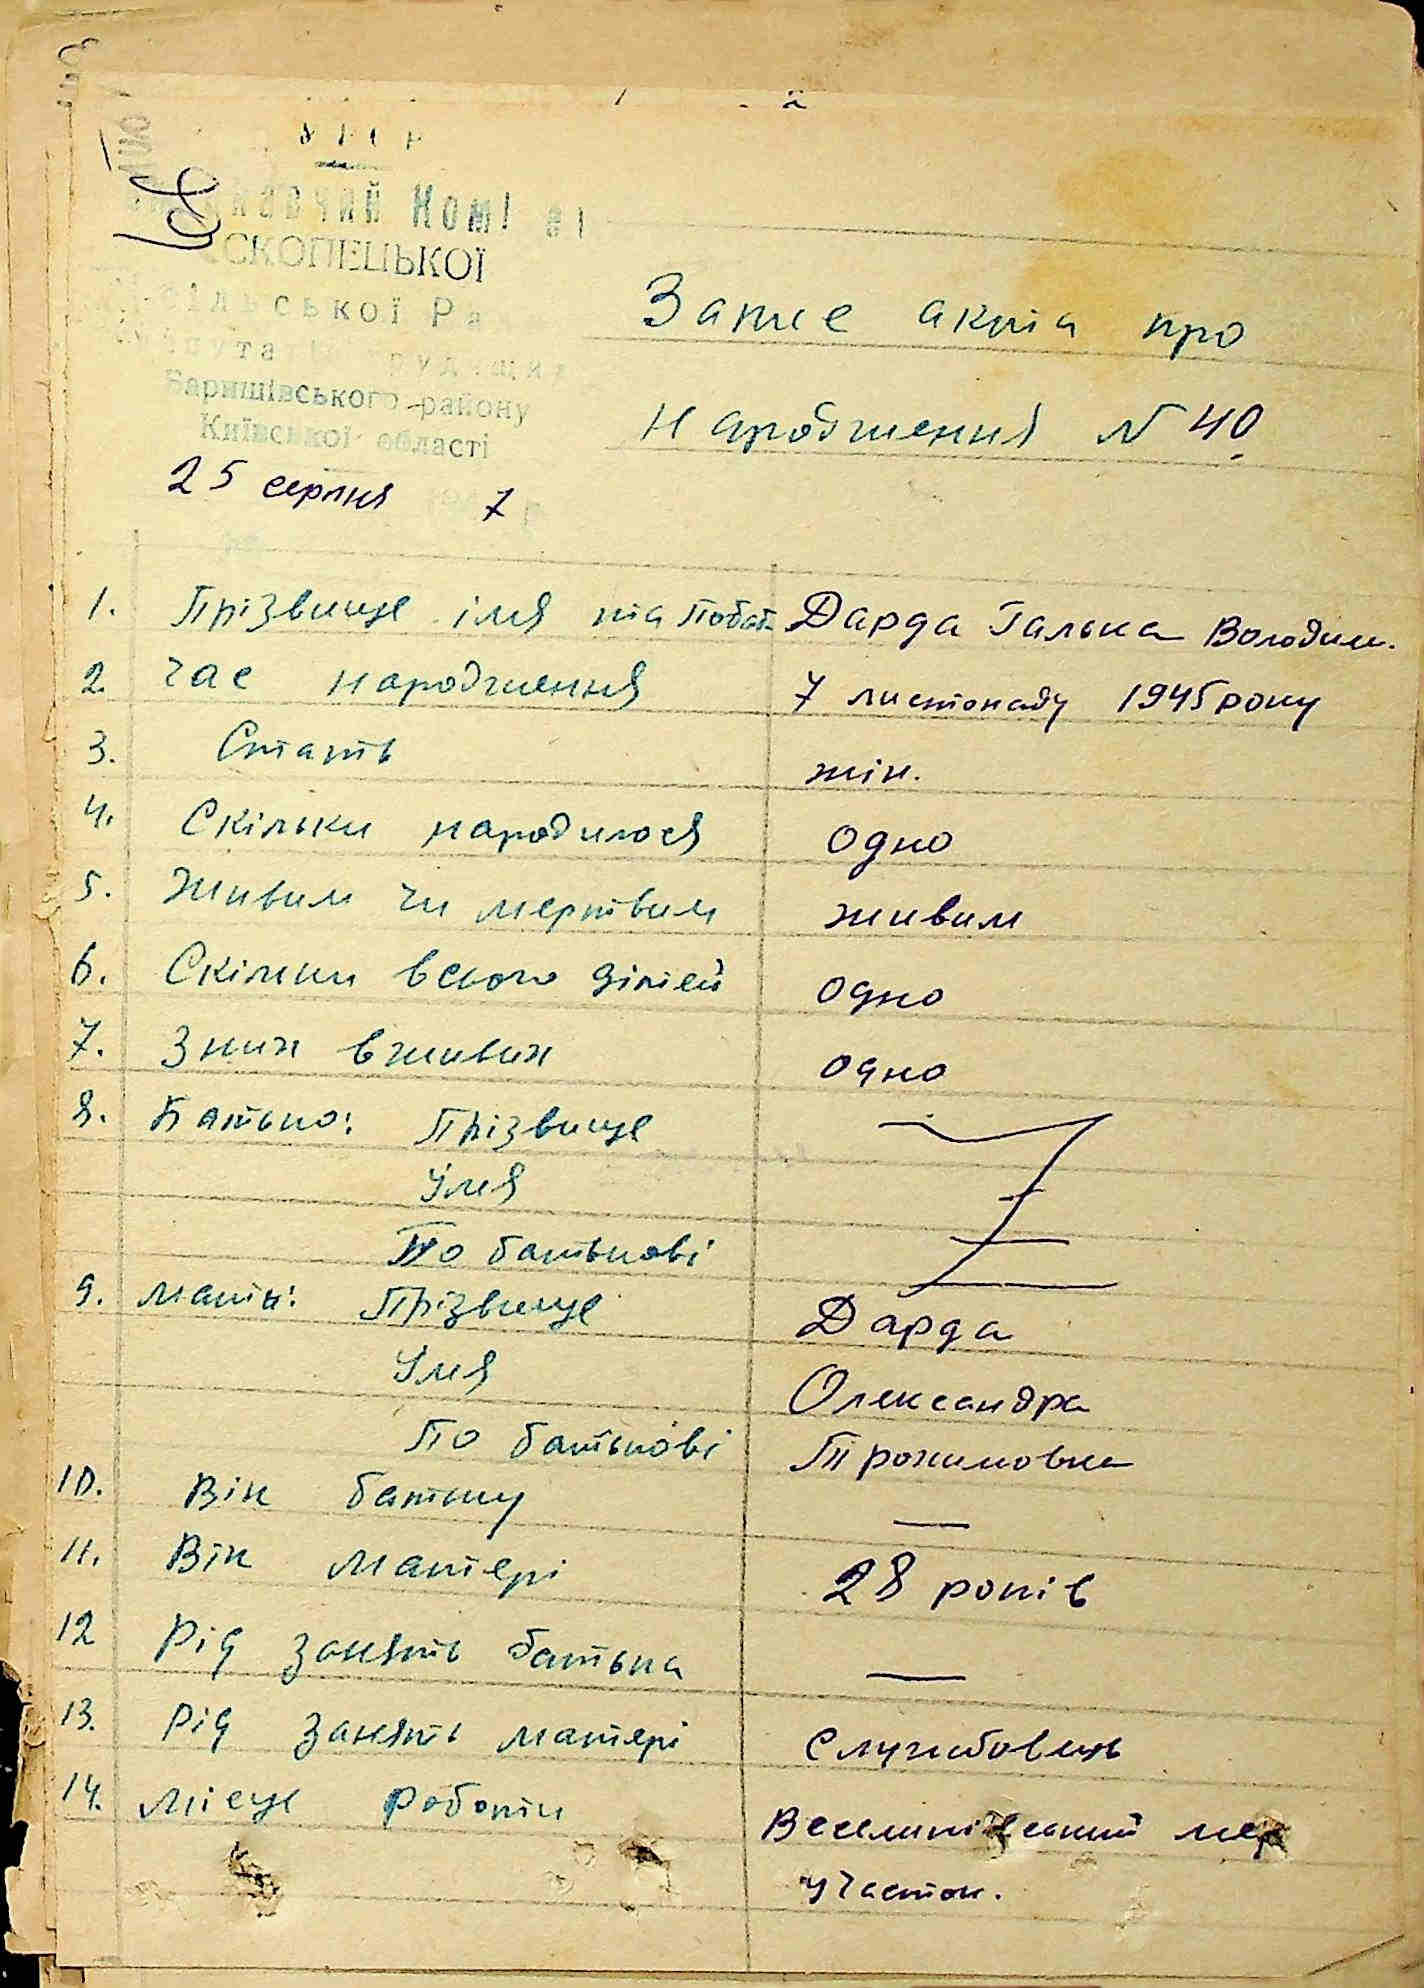 СКОПЕЦЬКОЇ
Баришівського району
Київської області
25 серпня 7
Запис акта про
народження № 40
1. Прізвище імя та побат Дарда Галька Володим.
2. Час народження 7 листопаду 1945 року
3. Стать жін.
4. Скільки народилося одно
5. Живим чи мертвим живим
6. Скільки всього дітей одно
7. З них вживих одно
8. Батько: Прізвище
Імя
По батькові
9. мати: Прізвище Дарда
Імя Олександра
По батькові Трохимовна
10. Вік батьку —
11. Вік матері 28 років
12 Рід занять батька —
13. Рід занять матері службовець
14. місце роботи мед
участок.